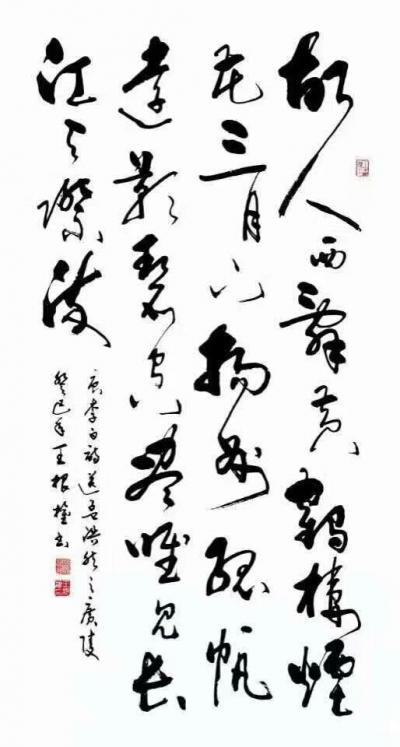 故人西辭黃鶴樓煙
花三月下揚州孤帆
遠影碧空盡唯見長
江天際流
唐李白詩送孟浩然之廣陵
癸巳年王根權書